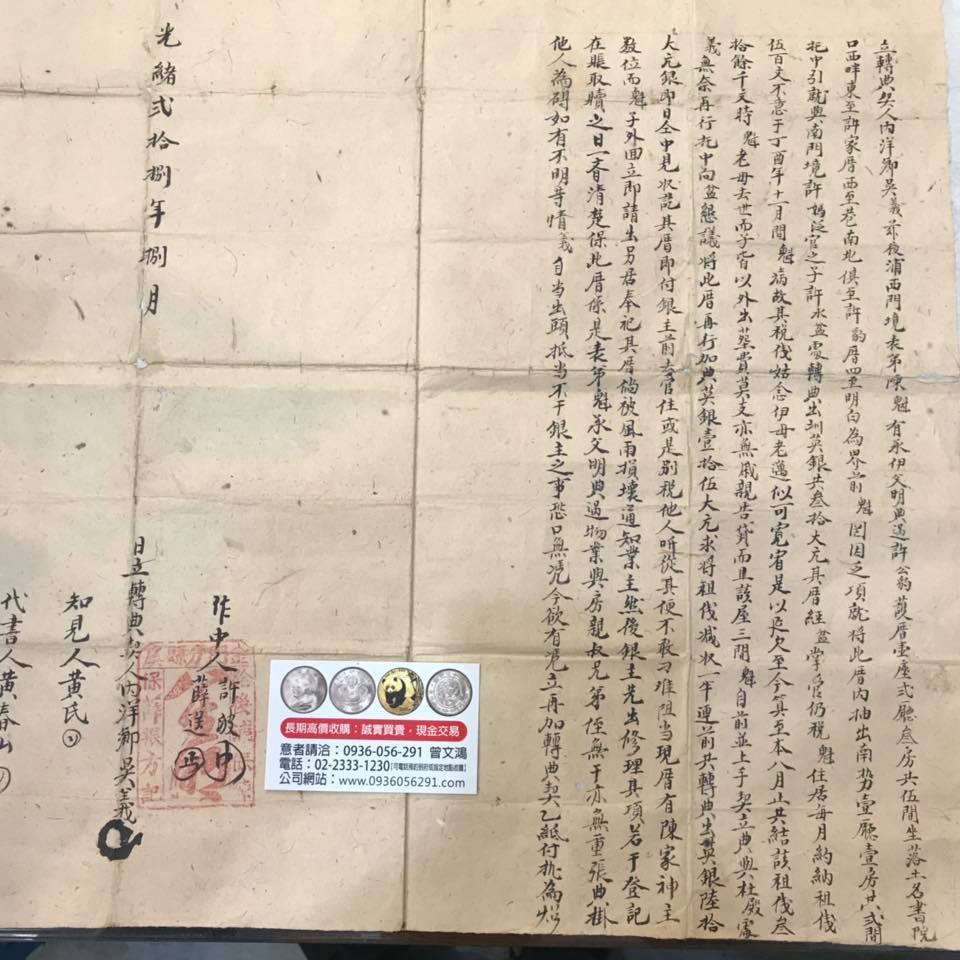 立轉典契人內洋鄉吳義茲後浦西門境表弟陳魁有承伊父明典過許公豹護厝壹座式廳叁房共伍間坐落土名書院
口西畔東至許家厝西至巷南北俱至許厝四至明白為界前魁因乏項就將此厝內抽出南勢壹廳壹房共貳間
托中引就與南門境許媽泛官之子許永盆處轉典出㓥英銀共叁拾大元其厝經盆掌官仍税魁住居每月約納租伐
伍百文不意于丁酉年十一月間魁病故其税伐姑念伊母老邁似可寬宥是以延欠至今算至本八月止共結該租伐叁
拾餘千文時魁老母去世而子皆以外出塟費莫支亦無戚親告貸而且該屋三間魁自前並上手契立典與杜殿處
義無奈再行托中向盆懇議將此厝再行加典英銀壹拾伍大元求將租伐减收一半連前共轉典出英銀陸拾
大元銀即日仝中見收訖其厝即付銀主前去管住或是別税他人听從其便不敢刁难阻当現厝有陳家神主
数位而魁子外回立即請出另居奉祀其厝倘被風雨損壞通知業主然後銀主先出修理其項若干登記
在賬取贖之日一齊清楚保此厝係是表弟魁承父明典過物業與房親叔兄弟侄無干亦無重張典掛
他人為碍如有不明等情義自当出頭抵当不干銀主之事恐口無憑今欲有憑立再加轉典契乙紙付执為炤
光緒弍拾捌年捌月
日立轉典契人內洋鄉吳義
作中人許
薛送
中
知見人黄氏
代書人黄春山
保
張方記
長期高價收購：誠實買賣，現金交易
意者請洽：0936-056-291 曾文鴻
電話：02-2333-1230【可電話預約到府或指定地點收購】
公司網站：www.0936056291.com